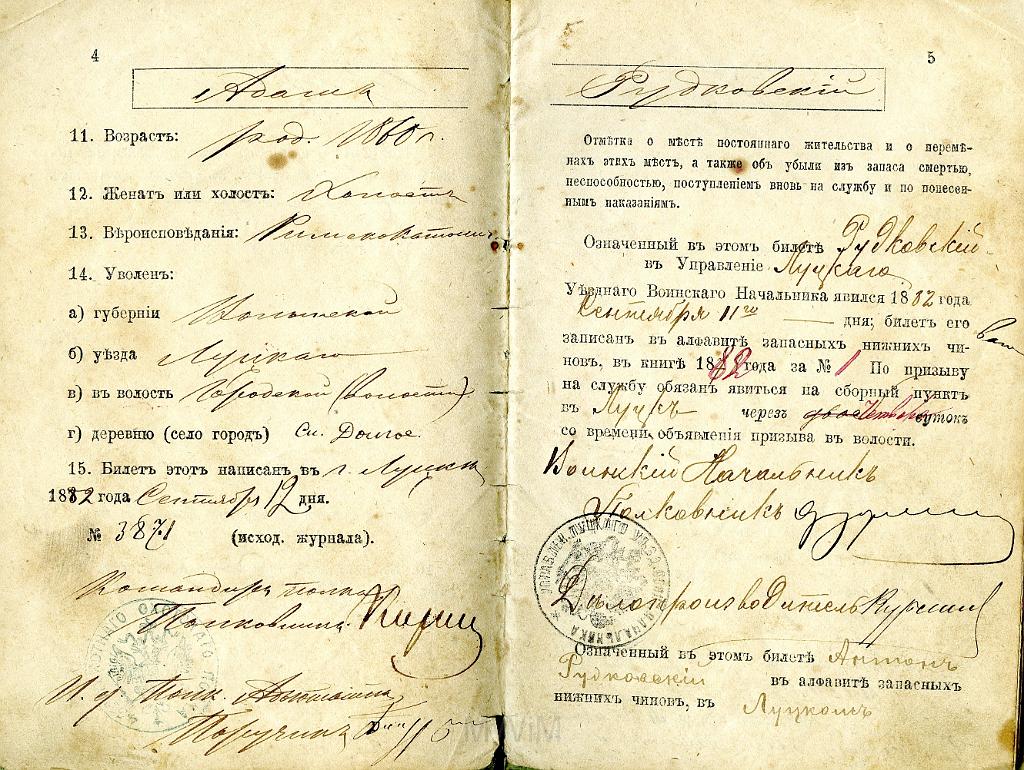 4
Адамъ
11. Возрастъ: род. 1860 г.
12. Женатъ или холостъ: Холостъ
13. Вѣроисповѣданія: Римскокатолич
14. Уволенъ:
а) губерніи Волынской
б) уѣзда Луцкаго
в) въ волость Городской (волости)
г) деревню (село городъ) Долгое.
15. Билетъ этотъ написанъ въ г. Луцкѣ
1882 года Сентября 12 дня.
№ 3871 (исход. журнала).
Командиръ полка
Полковникъ
И. д. Полк. Адъютанта
Поручикъ
5
Рудковскій
Отмѣтка о мѣстѣ постояннаго жительства и о перемѣ-
нахъ этихъ мѣстъ, а также объ убыли изъ запаса смертью,
неспособностью, поступленіемъ вновь на службу и по понесен-
нымъ наказаніямъ.
Означенный въ этомъ билетѣ Рудковскій
въ Управленіе Луцкаго
Уѣзднаго Воинскаго Начальника явился 1882 года
Сентября 11го дня; билетъ его
записанъ въ алфавитѣ запасныхъ нижнихъ чи-
новъ, въ книгѣ 1882 года за № 1 По призыву
на службу обязанъ явиться на сборный пунктъ
въ Луцкъ через сутокъ
со времени объявленія призыва въ волости.
Воинскій Начальникъ
Полковникъ
УПРАВЛЕН. ЛУЦКАГО УѢЗДН. НАЧАЛЬНИКА
Дѣлопроизводитель
Означенный въ этомъ билетѣ Антонъ
Рудковскій въ алфавитѣ запасныхъ
нижнихъ чиновъ, въ Луцкомъ
MWiM